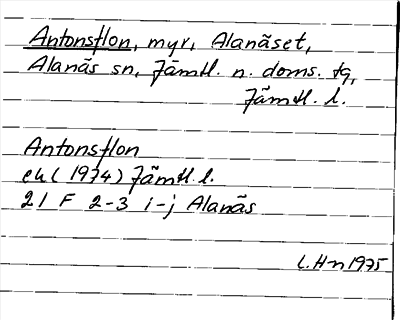 Antonsflon, myr, Alanäset,
Alanäs sn, Jämtl. n. doms. tg,
Jämtl. l.
Antonsflon
ek (1974) Jämtl. l.
21 F 2-3 i-j Alanäs
L.H-n 1975